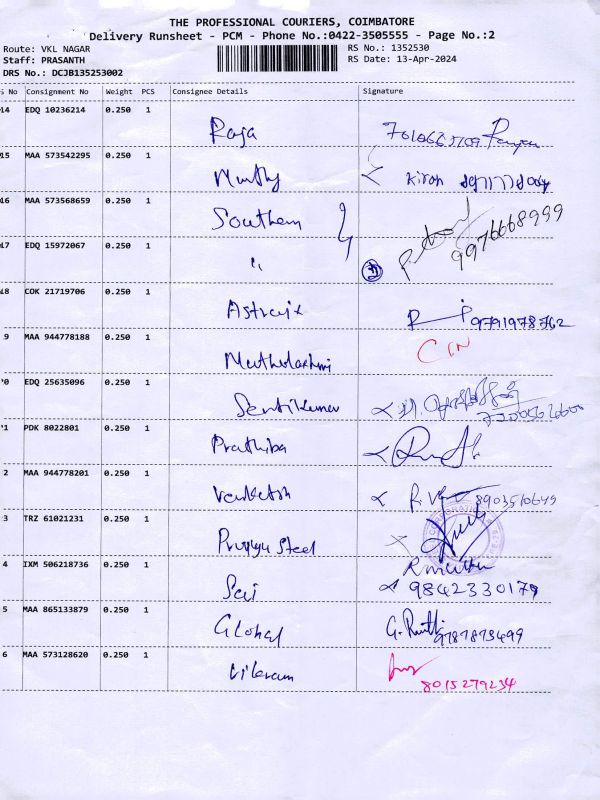 THE PROFESSIONAL COURIERS, COIMBATORE
Delivery Runsheet - PCM - Phone No.:0422-3505555 - Page No.:2
Route: VKL NAGAR RS No.: 1352530
Staff: PRASANTH RS Date: 13-Apr-2024
DRS No.: DCJB135253002
No Consignment No Weight PCS Consignee Details Signature
14 EDQ 10236214 0.250 1 Raja
15 MAA 573542295 0.250 1 Murthy Kiran
16 MAA 573568659 0.250 1 Southern
17 EDQ 15972067 0.250 1 " 9976668999
18 COK 21719706 0.250 1 9791978762
9 MAA 944778188 0.250 1 Muthulakshmi
EDQ 25635096 0.250 1 Sentilkumar
PDK 8022801 0.250 1 Prathiba
2 MAA 944778201 0.250 1 Venketsh 8903510649
3 TRZ 61021231 0.250 1 Steel
4 IXM 506218736 0.250 1 Sai 9842330179
5 MAA 865133879 0.250 1 Global 9787873499
6 MAA 573128620 0.250 1 Vikram 8015279234